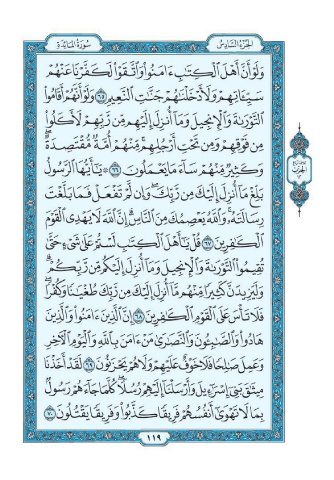 الجزء السادس
سورة المائدة
وَلَوْ أَنَّ أَهْلَ الْكِتَابِ ءَامَنُوا وَاتَّقَوْا لَكَفَّرْنَا عَنْهُمْ
سَيِّئَاتِهِمْ وَلَأَدْخَلْنَاهُمْ جَنَّاتِ النَّعِيمِ ٦٥ وَلَوْ أَنَّهُمْ أَقَامُوا
التَّوْرَاةَ وَالْإِنجِيلَ وَمَا أُنزِلَ إِلَيْهِم مِّن رَّبِّهِمْ لَأَكَلُوا
مِن فَوْقِهِمْ وَمِن تَحْتِ أَرْجُلِهِم مِّنْهُمْ أُمَّةٌ مُّقْتَصِدَةٌ
وَكَثِيرٌ مِّنْهُمْ سَاءَ مَا يَعْمَلُونَ ٦٦ ۞ يَٰأَيُّهَا الرَّسُولُ
بَلِّغْ مَا أُنزِلَ إِلَيْكَ مِن رَّبِّكَ وَإِن لَّمْ تَفْعَلْ فَمَا بَلَّغْتَ
رِسَالَتَهُ وَاللَّهُ يَعْصِمُكَ مِنَ النَّاسِ إِنَّ اللَّهَ لَا يَهْدِي الْقَوْمَ
الْكَافِرِينَ ٦٧ قُلْ يَٰأَهْلَ الْكِتَابِ لَسْتُمْ عَلَىٰ شَيْءٍ حَتَّىٰ
تُقِيمُوا التَّوْرَاةَ وَالْإِنجِيلَ وَمَا أُنزِلَ إِلَيْكُم مِّن رَّبِّكُمْ
وَلَيَزِيدَنَّ كَثِيرًا مِّنْهُم مَّا أُنزِلَ إِلَيْكَ مِن رَّبِّكَ طُغْيَانًا وَكُفْرًا
فَلَا تَأْسَ عَلَى الْقَوْمِ الْكَافِرِينَ ٦٨ إِنَّ الَّذِينَ ءَامَنُوا وَالَّذِينَ
هَادُوا وَالصَّابِئُونَ وَالنَّصَارَىٰ مَنْ ءَامَنَ بِاللَّهِ وَالْيَوْمِ الْءَاخِرِ
وَعَمِلَ صَالِحًا فَلَا خَوْفٌ عَلَيْهِمْ وَلَا هُمْ يَحْزَنُونَ ٦٩ لَقَدْ أَخَذْنَا
مِيثَاقَ بَنِي إِسْرَٰءِيلَ وَأَرْسَلْنَا إِلَيْهِمْ رُسُلًا كُلَّمَا جَاءَهُمْ رَسُولٌ
بِمَا لَا تَهْوَىٰ أَنفُسُهُمْ فَرِيقًا كَذَّبُوا وَفَرِيقًا يَقْتُلُونَ ٧٠
١١٩